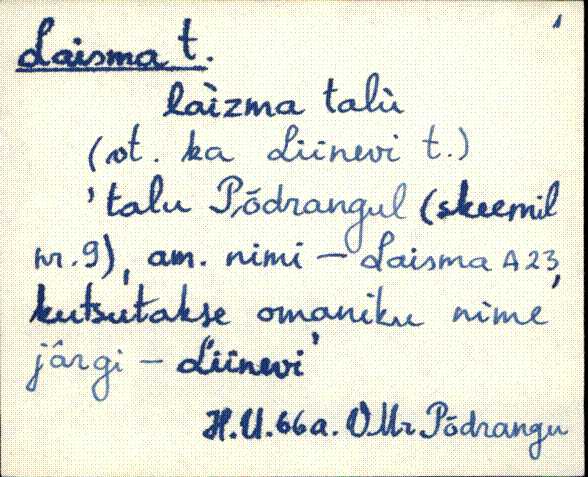 Laisma t.
laìzma talù
(vt. ka Liinevi t.)
'talu Põdrangul (skeemil
nr. 9), am. nimi – Laisma A23,
kutsutakse omaniku nime
järgi – Liinevi'
H.U. 66a. VMr Põdrangu